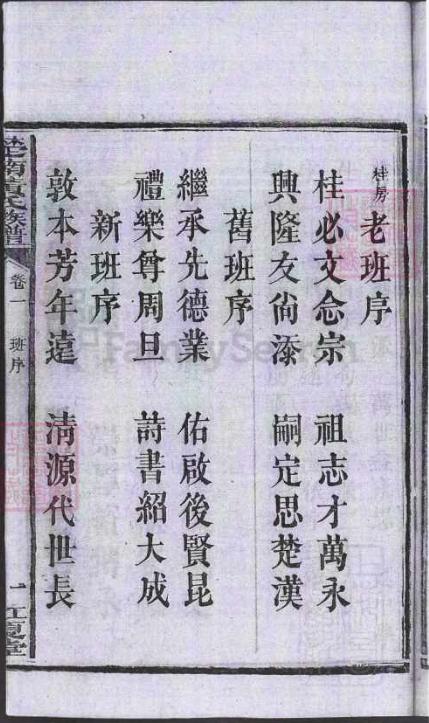 桂房 老班序
桂必文念宗 祖志才萬永
興隆友尙添 嗣定思楚漢
舊班序
繼承先德業 佑啟後賢昆
禮樂尊周旦 詩書紹大成
新班序
敦本芳年遠 清源代世長
楚南黃氏族譜 卷一 班序 一 江夏堂
FamilySearch